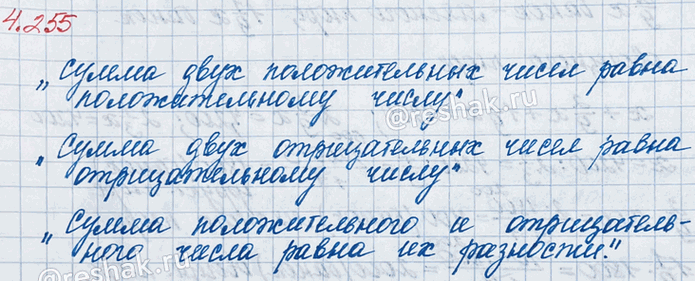 4.255
„Сумма двух положительных чисел равна
положительному числу"
„Сумма двух отрицательных чисел равна
отрицательному числу"
„Сумма положительного и отрицатель-
ного числа равна их разности."
@reshak.ru
@reshak.ru
@reshak.ru